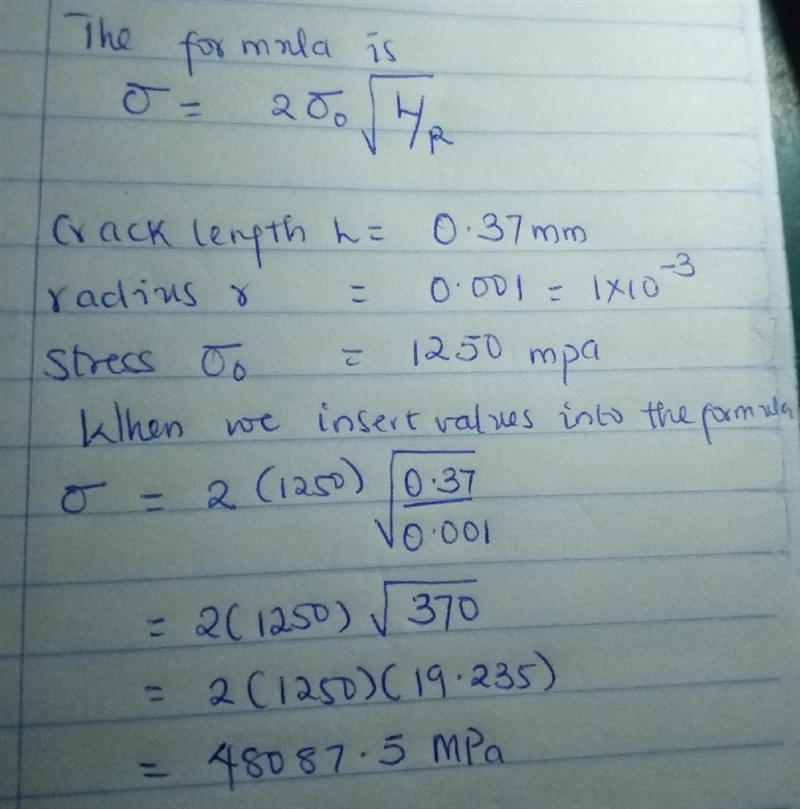 The formula is
σ = 2σ₀ √L/R
Crack length L = 0.37mm
radius r = 0.001 = 1×10⁻³
Stress σ₀ = 1250 mpa
When we insert values into the formula
σ = 2 (1250) √0.37/0.001
= 2(1250) √370
= 2(1250)(19.235)
= 48087.5 MPa